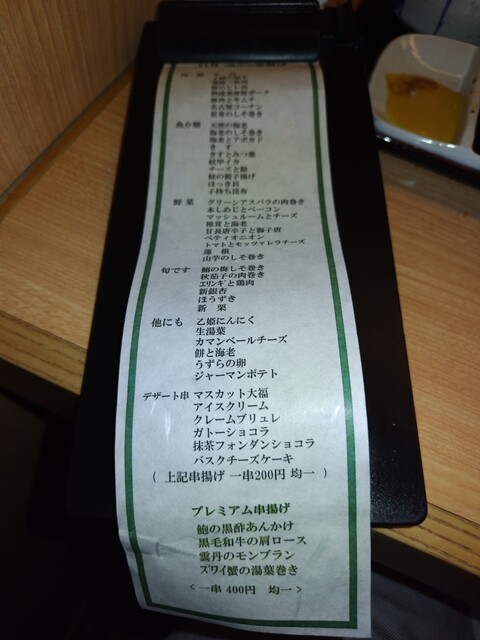 名古屋コーチン
魚介類 天使の海老
海老のしそ巻き
海老とアボカド
きす
きすとみつ葉
紋甲イカ
チーズと鮭
ほっき貝
子持ち昆布
野菜 グリーンアスパラの肉巻き
本しめじとベーコン
マッシュルームとチーズ
椎茸と海老
甘長唐辛子と獅子唐
ペティオニオン
トマトとモッツァレラチーズ
蓮根
山芋のしそ巻き
旬です 鰯の梅しそ巻き
秋茄子の肉巻き
エリンギと鶏肉
新銀杏
ほうずき
新栗
他にも 乙姫にんにく
生湯葉
カマンベールチーズ
餅と海老
うずらの卵
ジャーマンポテト
デザート串 マスカット大福
アイスクリーム
クレームブリュレ
ガトーショコラ
抹茶フォンダンショコラ
バスクチーズケーキ
( 上記串揚げ 一串200円 均一 )
プレミアム串揚げ
鮑の黒酢あんかけ
黒毛和牛の肩ロース
雲丹のモンブラン
ズワイ蟹の湯葉巻き
<一串 400円 均一>